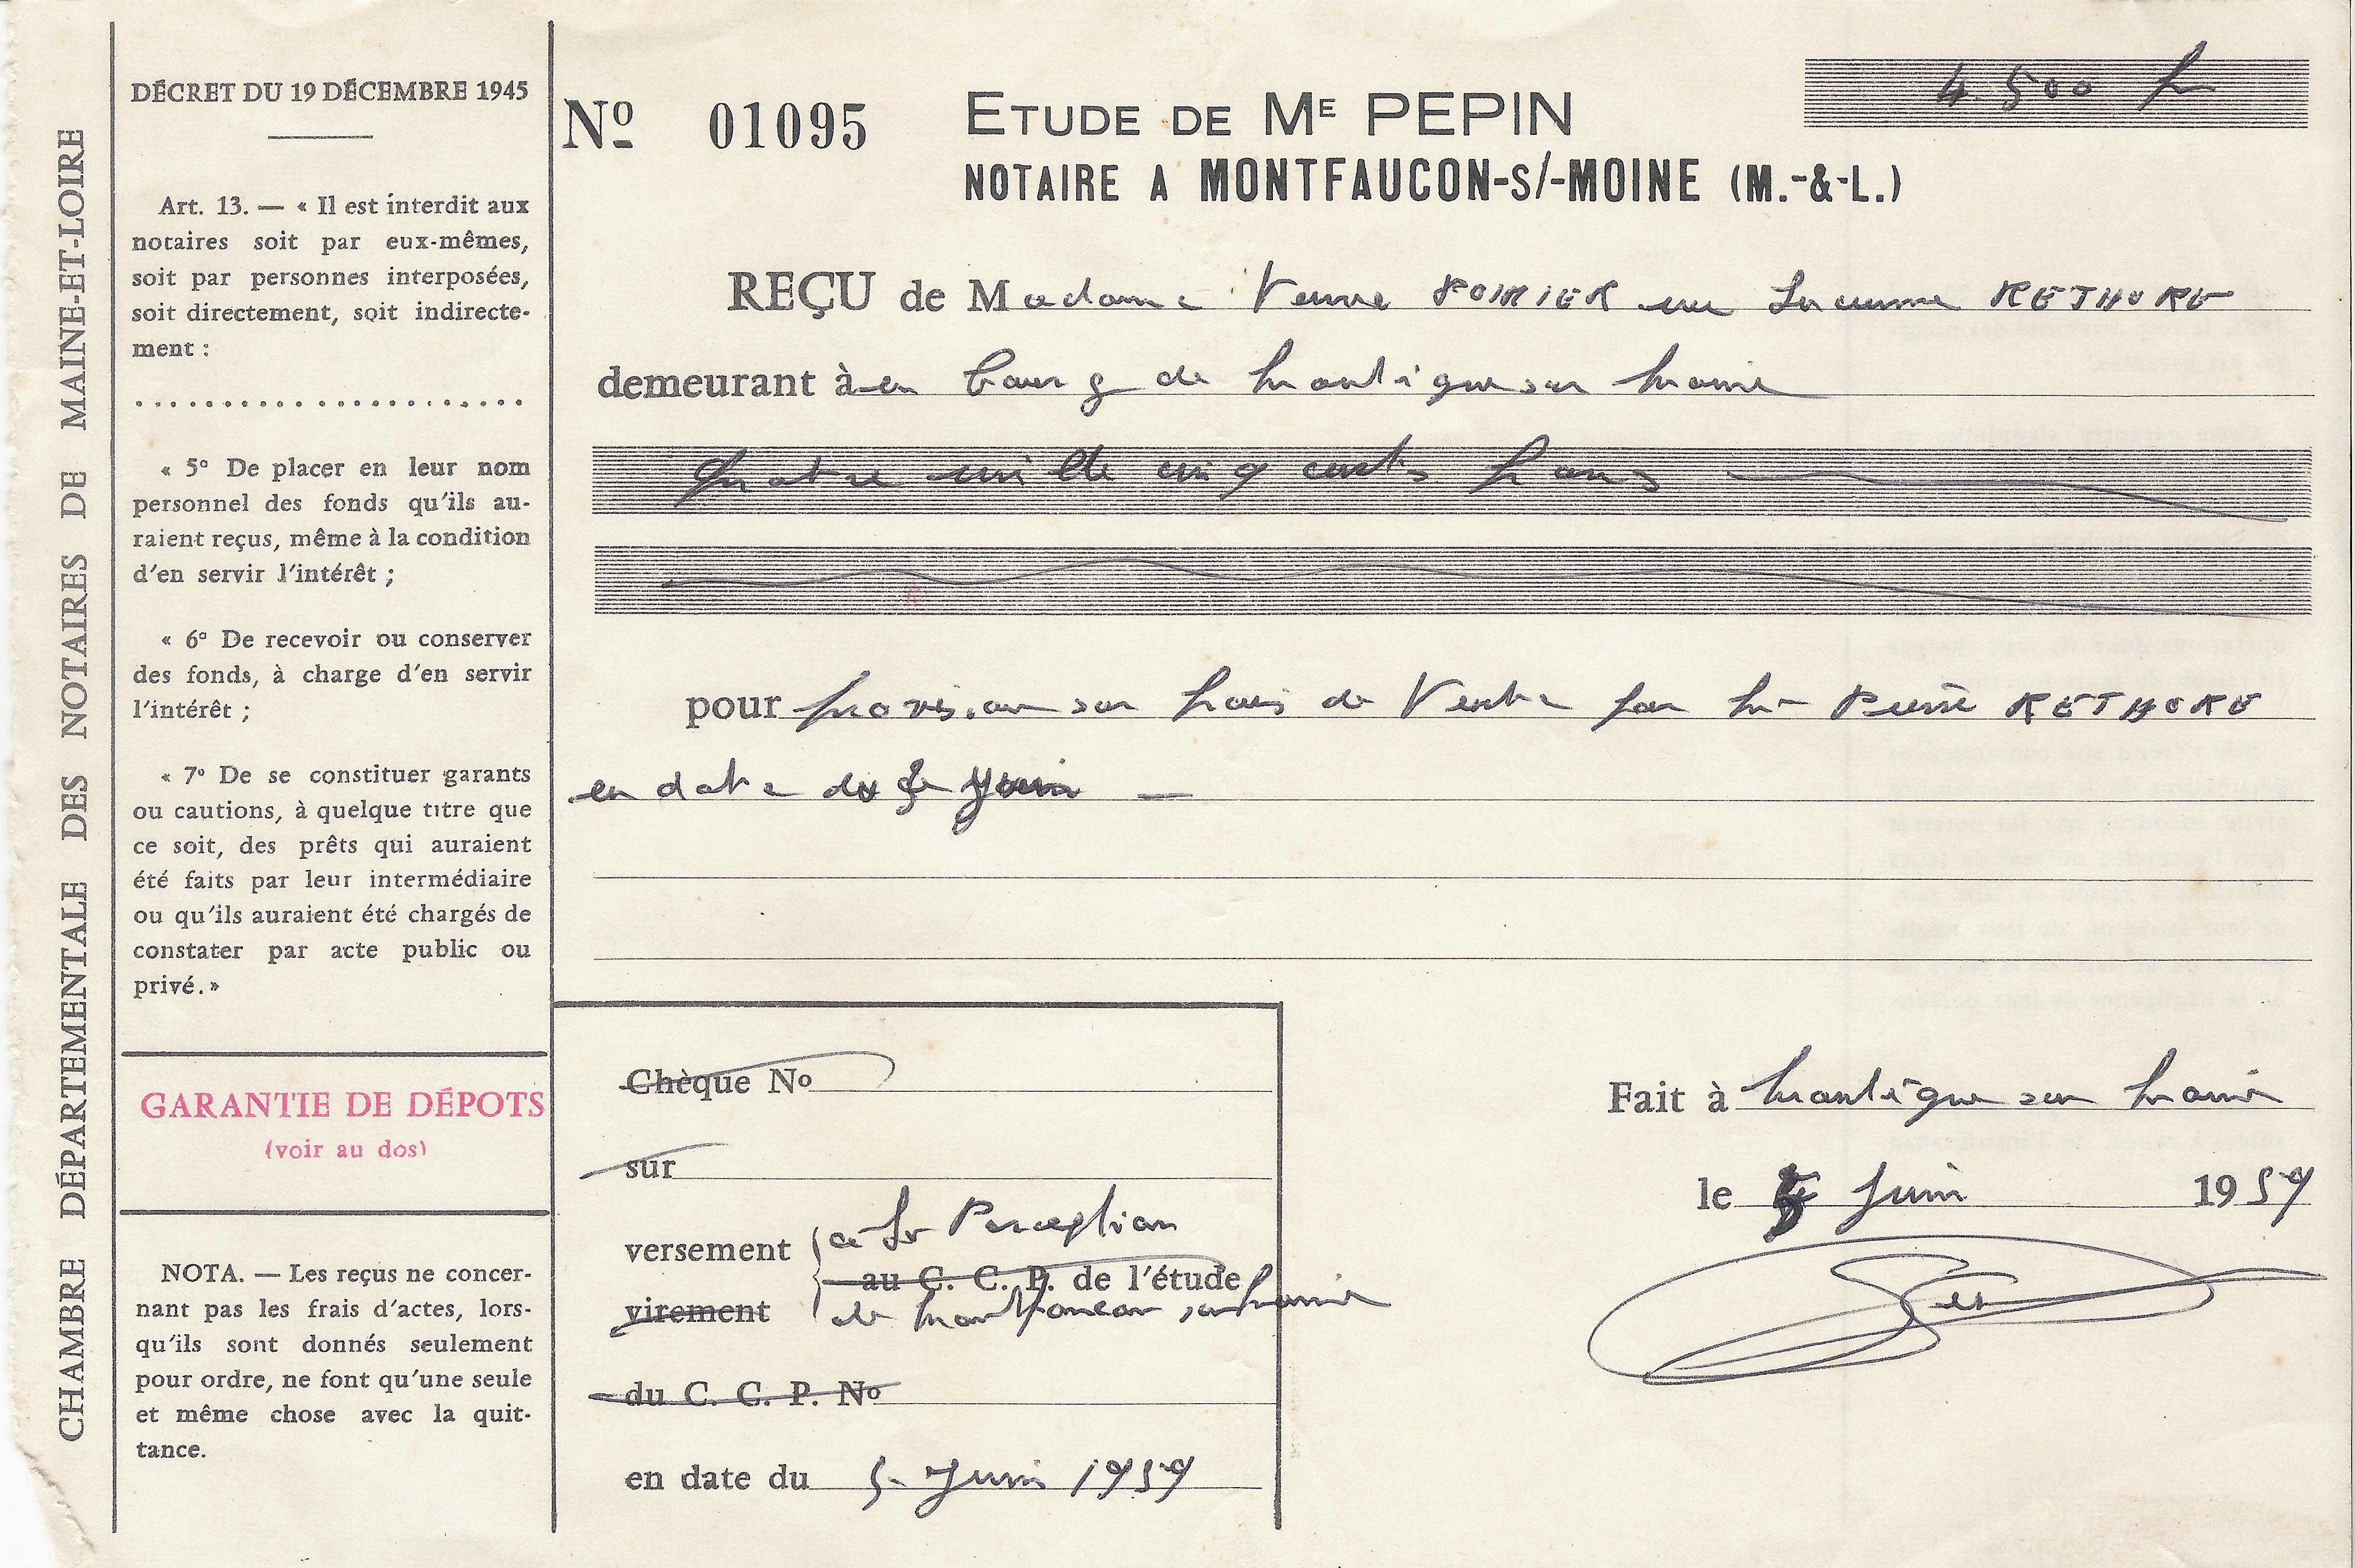 CHAMBRE DÉPARTEMENTALE DES NOTAIRES DE MAINE-ET-LOIRE
DÉCRET DU 19 DÉCEMBRE 1945
Art. 13. — « Il est interdit aux
notaires soit par eux-mêmes,
soit par personnes interposées,
soit directement, soit indirecte-
ment :
........................
« 5º De placer en leur nom
personnel des fonds qu'ils au-
raient reçus, même à la condition
d'en servir l'intérêt ;
« 6º De recevoir ou conserver
des fonds, à charge d'en servir
l'intérêt ;
« 7º De se constituer garants
ou cautions, à quelque titre que
ce soit, des prêts qui auraient
été faits par leur intermédiaire
ou qu'ils auraient été chargés de
constater par acte public ou
privé.»
GARANTIE DE DÉPOTS
(voir au dos)
NOTA. — Les reçus ne concer-
nant pas les frais d'actes, lors-
qu'ils sont donnés seulement
pour ordre, ne font qu'une seule
et même chose avec la quit-
tance.
Nº 01095
ETUDE DE Mᴱ PEPIN
4.500 fr
NOTAIRE A MONTFAUCON-S/-MOINE (M.-&-L.)
REÇU de Madame Veuve POIRIER née RETHORE
demeurant à au bourg de Montigné sur Moine
Quatre mille cinq cents francs
pour provision sur frais de Vente par Mr Pierre RETHORE
en date du Juin
Chèque Nº
sur
versement à la Perception
au C. C. P. de l'étude
virement de Montfaucon sur Moine
du C. C. P. Nº
en date du 5 Juin 1959
Fait à Montigné sur Moine
le 5 Juin 1959